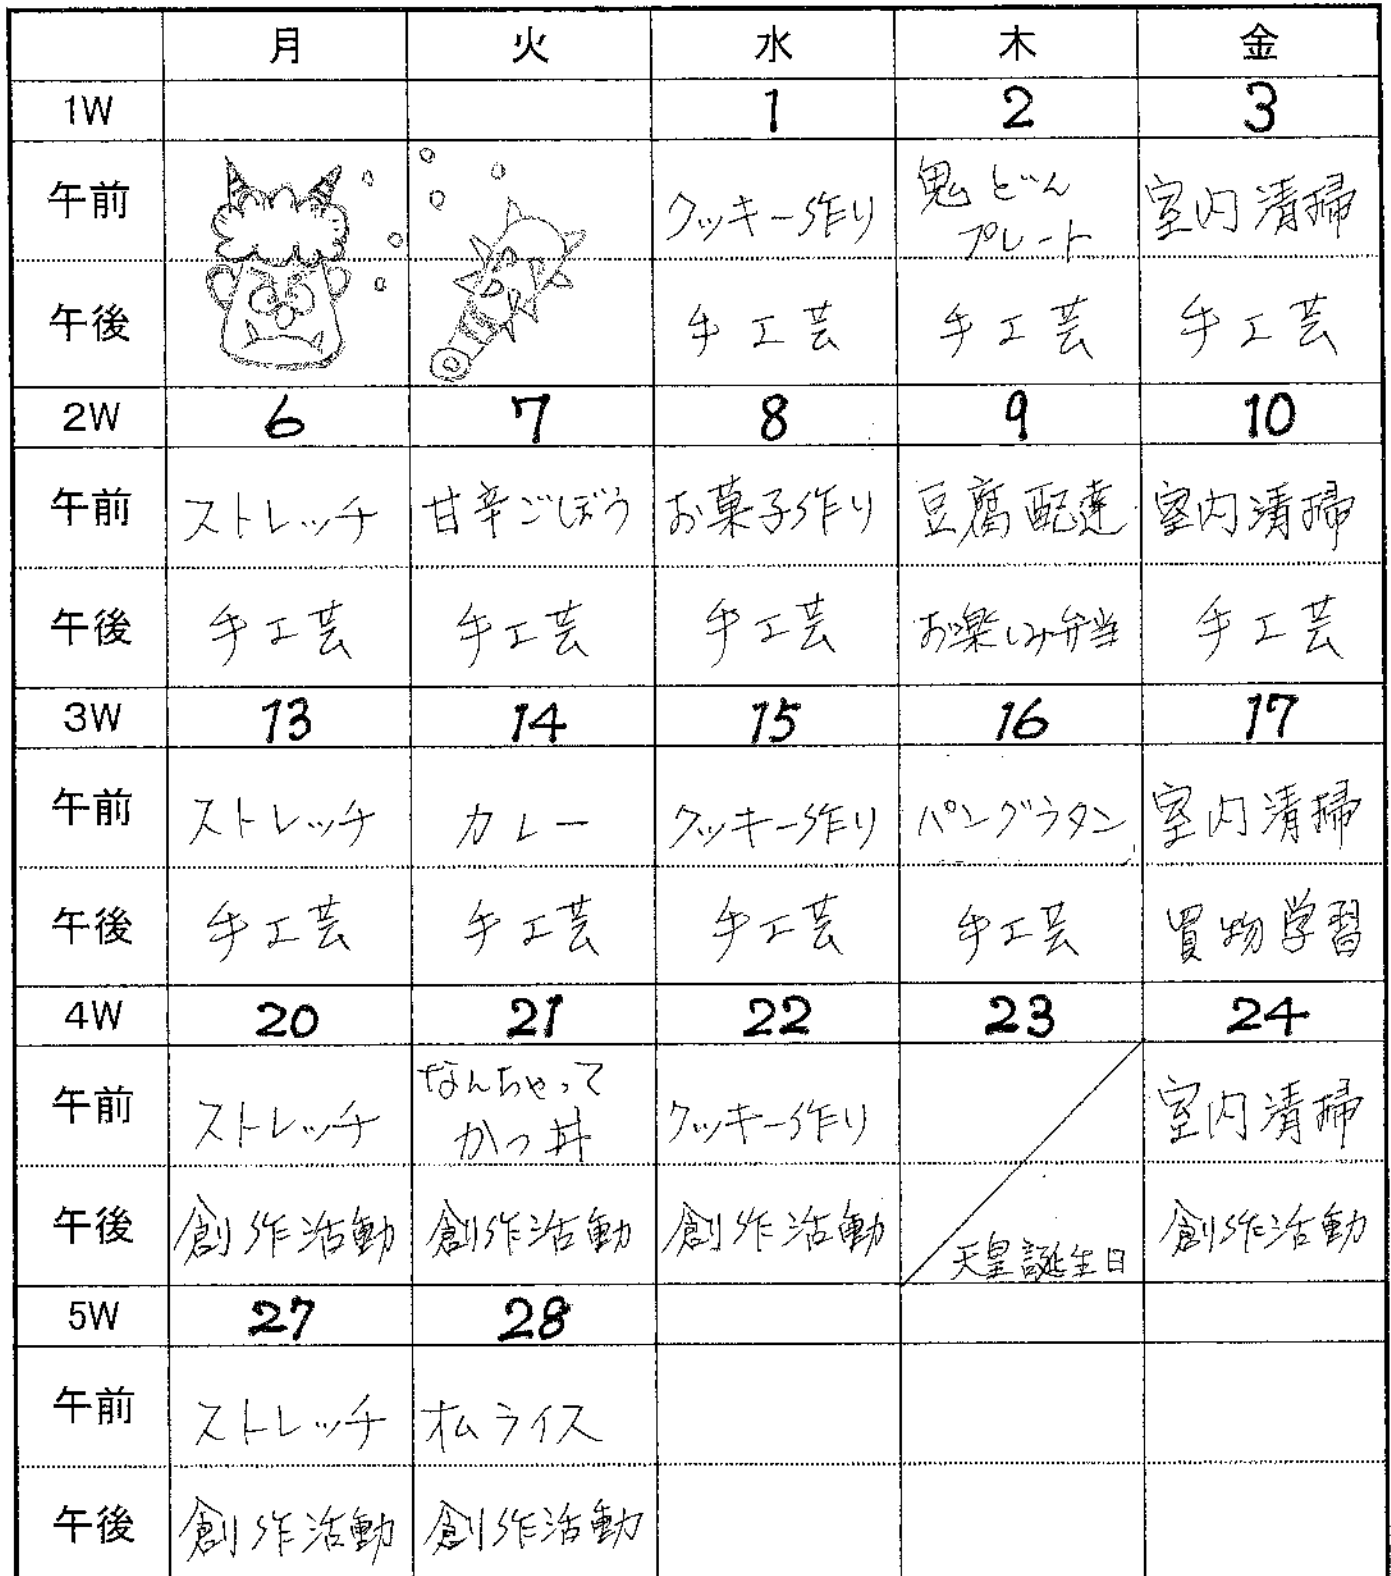 月 火 水 木 金
1W 1 2 3
午前 クッキー作り 鬼どん プレート 室内清掃
午後 手工芸 手工芸 手工芸
2W 6 7 8 9 10
午前 ストレッチ 甘辛ごぼう お菓子作り 豆腐配達 室内清掃
午後 手工芸 手工芸 手工芸 お楽しみ弁当 手工芸
3W 13 14 15 16 17
午前 ストレッチ カレー クッキー作り パングラタン 室内清掃
午後 手工芸 手工芸 手工芸 手工芸 買物学習
4W 20 21 22 23 24
午前 ストレッチ なんちゃって かつ丼 クッキー作り 室内清掃
午後 創作活動 創作活動 創作活動 天皇誕生日 創作活動
5W 27 28
午前 ストレッチ オムライス
午後 創作活動 創作活動